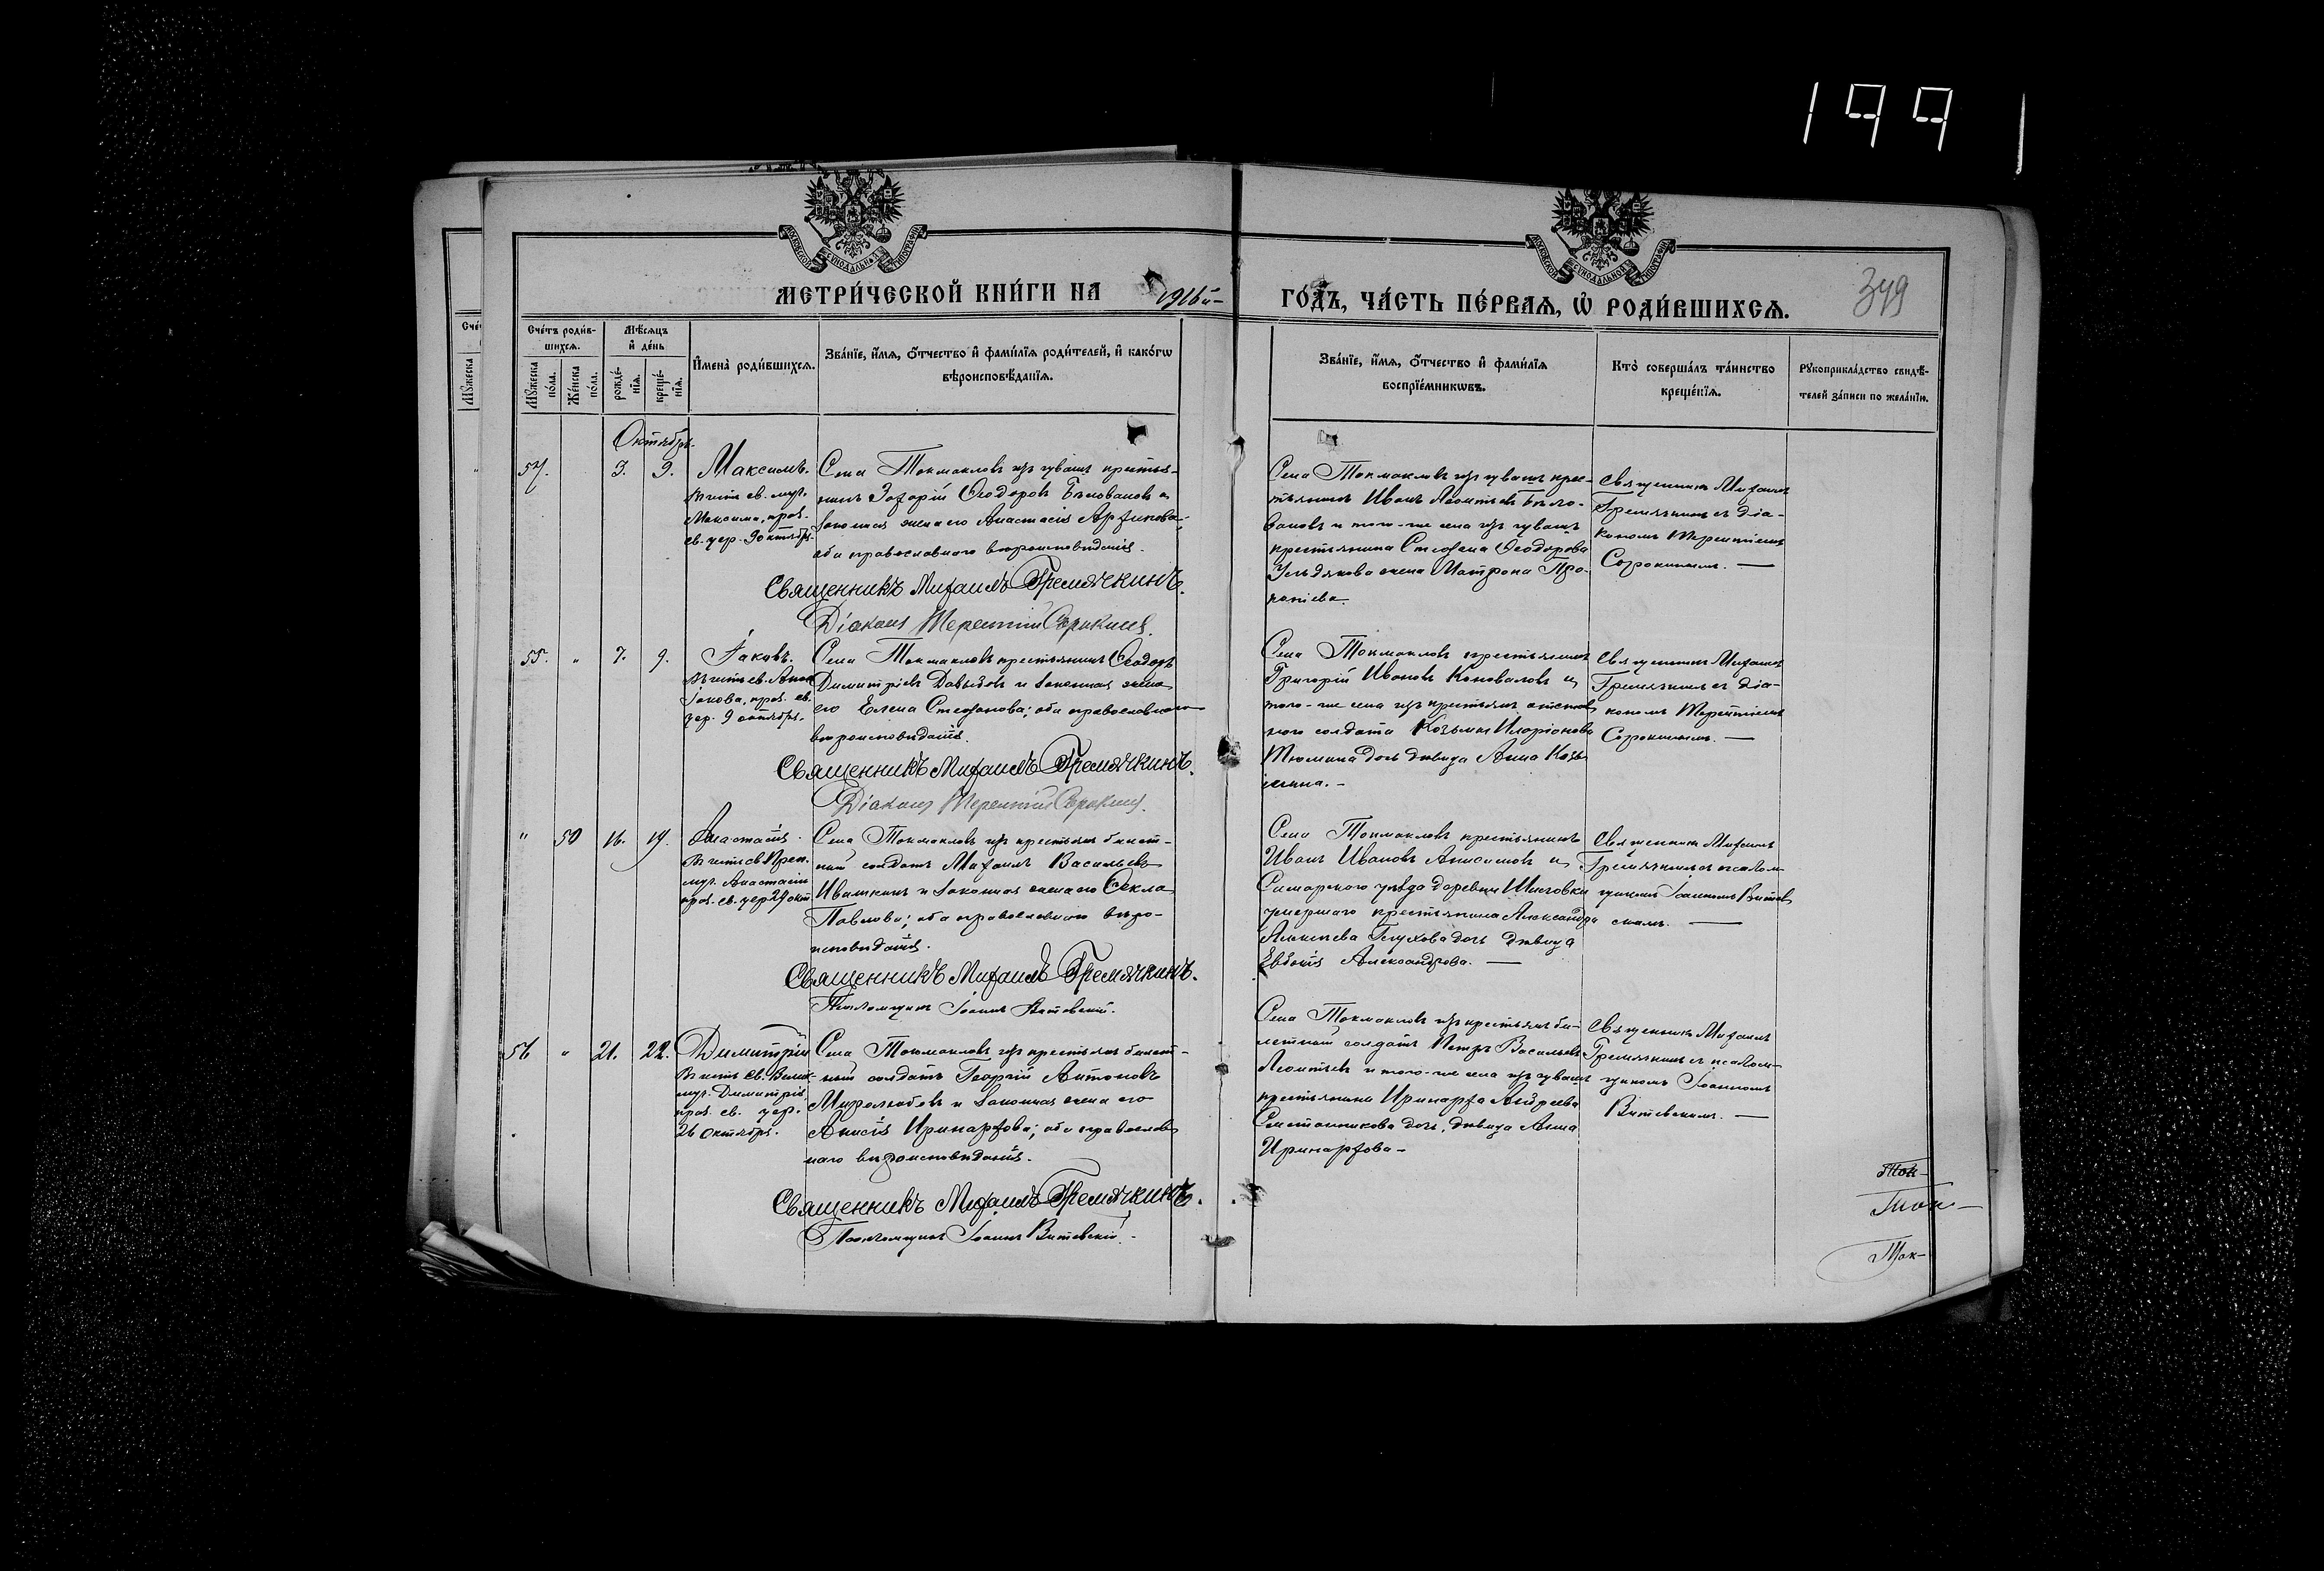 1991
МОСКОВСКОЙ СѴНОДАЛЬНОЙ ТИПОГРАФІИ
МОСКОВСКОЙ СѴНОДАЛЬНОЙ ТИПОГРАФІИ
МЕТРИ́ЧЕСКОЙ КНИ́ГИ НА 1916й
ГО́ДЪ, ЧА́СТЬ ПЕ́РВАѦ, Ѡ҆ РОДИ́ВШИХСѦ.
349
Сче́тъ роди́в-
шихсѧ.
Мѣ́сѧцъ
и҆ де́нь
Мꙋ́жеска
по́ла.
Же́нска
по́ла.
рожде́-
нїѧ.
креще́-
нїѧ.
И҆мена̀ роди́вшихсѧ.
Зва́нїе, и҆́мѧ, ѻ҆́тчество и҆ фами́лїѧ роди́телей, и҆ како́гѡ
вѣроисповѣ́данїѧ.
Зва́нїе, и҆́мѧ, ѻ҆́тчество и҆ фами́лїѧ
воспрїе́мникѡвъ.
Кто̀ соверша́лъ та́инство
креще́нїѧ.
Рꙋкоприкла́дство свидѣ́-
телей за́писи по жела́нїю.
Октябрь.
54. 3. 9. Максимъ.
Въ честь св. муч.
Максима, праз.
св. цер. 9 октябр.
Села Токмаклов изъ чуваш крестья-
нинъ Захарій Ѳеодоров Бѣлованов и
законная жена его Анастасія
оба православнаго вѣроисповѣданія.
Священникъ Михаилъ Гремячкинъ.
Діаконъ Терентій Сорокинъ.
Села Токмаклов изъ чуваш крес-
тьянинъ Иванъ Леонтьев Бѣло-
ванов и того-же села изъ чуваш
крестьянина Стефана Ѳеодорова
жена Матрона Про-
копіева.
Священник Михаил
Гремячкин с діа-
кономъ Терентіемъ
Сорокинымъ. —
55. " 7. 9. Іаковъ.
Въ честь св. Апост.
Іакова, праз. св.
цер. 9 октябр.
Села Токмаклов крестьянинъ Ѳеодоръ
Димитріев Давыдов и законная жена
его Елена Стефанова; оба православнаго
вѣроисповѣданія.
Священникъ Михаилъ Гремячкинъ.
Діаконъ Терентій Сорокинъ.
Села Токмаклов крестьянинъ
Григорій Иванов Коновалов и
того-же села изъ крестьян отстав-
ного солдата Козьмы Иларіонова
Тюмина дочь дѣвица Анна Козь-
мина. -
Священник Михаил
Гремячкин с діа-
кономъ Терентіемъ
Сорокинымъ. —
" 50 16. 17. Анастасія.
Въ честь св. Преп.
муч. Анастасіи
праз. св. цер 29 окт
Села Токмаклов изъ крестьян билет-
ный солдатъ Михаилъ Васильев
Ивашкин и законная жена его Ѳекла
Павлова; оба православнаго вѣро-
исповѣданія.
Священникъ Михаилъ Гремячкинъ.
Псаломщикъ Іоаннъ Витевскій.
Села Токмаклов крестьянинъ
Иванъ Иванов Анисимов и
Самарского уѣзда деревни
умершаго крестьянина Александра
Алексѣева Глухова дочь дѣвица
Евдокія Александрова. —
Священник Михаил
Гремячкин с псалом-
щиком Іоанномъ Витев-
скимъ. —
56 " 21. 22. Димитрій
Въ честь св. Велик.
муч. Димитрія,
праз. св. цер.
26 октябр.
Села Токмаклов изъ крестьян билет-
ный солдатъ Георгій Антонов
Миролюбов и законная жена его
Анисія Иринархова; оба православ-
наго вѣроисповѣданія.
Священникъ Михаилъ Гремячкинъ.
Псаломщикъ Іоаннъ Витевскій.
Села Токмаклов изъ крестьян би-
летный солдатъ Петръ Васильев
Леонтьев и того-же села изъ чуваш
крестьянина Иринарха Андреева
Сметанникова дочь, дѣвица Анна
Иринархова -
Священник Михаил
Гремячкин с псалом-
щиком Іоанномъ
Витевскимъ. —
Ток-
Ток-
Ток-